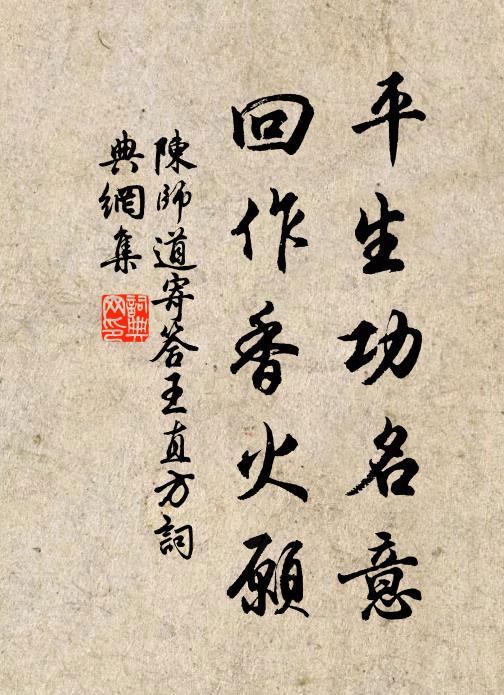 平生功名意
回作香火願
陳師道寄答王直方詞
典網集
詞典网印